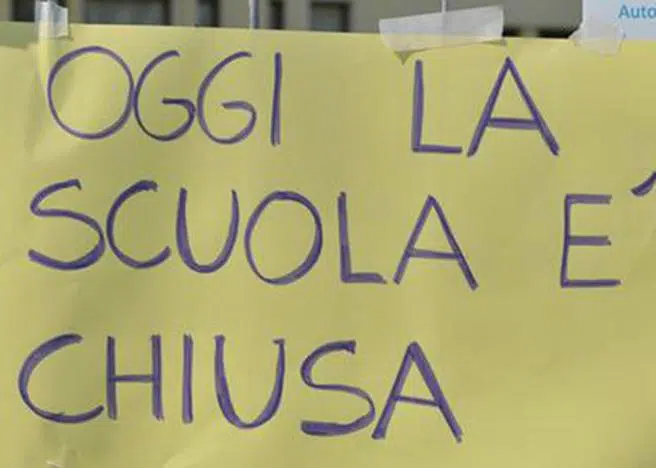 Auto
OGGI LA
SCUOLA E'
CHIUSA